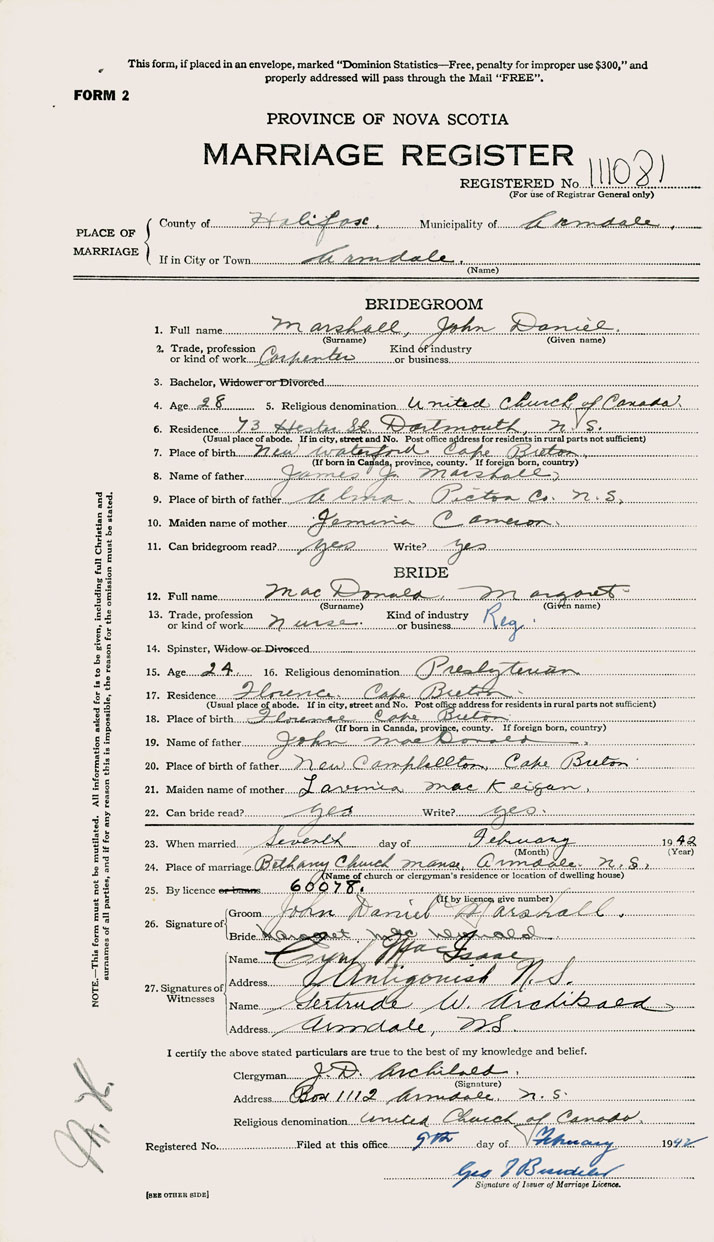 This form, if placed in an envelope, marked "Dominion Statistics—Free, penalty for improper use $300," and
properly addressed will pass through the Mail "FREE".
FORM 2
PROVINCE OF NOVA SCOTIA
MARRIAGE REGISTER
REGISTERED No. 111081
(For use of Registrar General only)
PLACE OF MARRIAGE
County of Halifax, Municipality of Armdale,
If in City or Town Armdale.
(Name)
BRIDEGROOM
1. Full name Marshall, John Daniel.
(Surname) (Given name)
2. Trade, profession or kind of work Carpenter Kind of industry or business
3. Bachelor, Widower or Divorced
4. Age 28 5. Religious denomination United Church of Canada.
6. Residence 73 Hester St. Dartmouth, N.S.
(Usual place of abode. If in city, street and No. Post office address for residents in rural parts not sufficient)
7. Place of birth New Waterford Cape Breton.
(If born in Canada, province, county. If foreign born, country)
8. Name of father James J. Marshall,
9. Place of birth of father Alma, Pictou Co. N.S.
10. Maiden name of mother Jemima Cameron.
11. Can bridegroom read? yes Write? yes
BRIDE
12. Full name MacDonald, Margaret
(Surname) (Given name)
13. Trade, profession or kind of work Nurse. Kind of industry or business Reg.
14. Spinster, Widow or Divorced
15. Age 24 16. Religious denomination Presbyterian
17. Residence Florence. Cape Breton.
(Usual place of abode. If in city, street and No. Post office address for residents in rural parts not sufficient)
18. Place of birth Florence Cape Breton
(If born in Canada, province, county. If foreign born, country)
19. Name of father John MacDonald.
20. Place of birth of father New Campbellton, Cape Breton
21. Maiden name of mother Lavinia MacKeigan,
22. Can bride read? yes Write? yes.
23. When married Seventh day of February 1942
(Month) (Year)
24. Place of marriage Bethany Church Manse, Armdale. N.S.
(Name of church or clergyman's residence or location of dwelling house)
25. By licence or banns 60078.
(If by licence, give number)
26. Signature of
Groom John Daniel Marshall.
Bride Margaret MacDonald
27. Signatures of Witnesses
Name MacIsaac
Address Antigonish N.S.
Name Gertrude W. Archibald
Address Armdale, NS.
I certify the above stated particulars are true to the best of my knowledge and belief.
Clergyman J.D. Archibald.
(Signature)
Address Box 1112 Armdale, N.S.
Religious denomination United Church of Canada,
Registered No. Filed at this office 9th day of February 1942
Geo
Signature of Issuer of Marriage Licence.
[SEE OTHER SIDE]
NOTE.—This form must not be mutilated. All information asked for is to be given, including full Christian and
surnames of all parties, and if for any reason this is impossible, the reason for the omission must be stated.